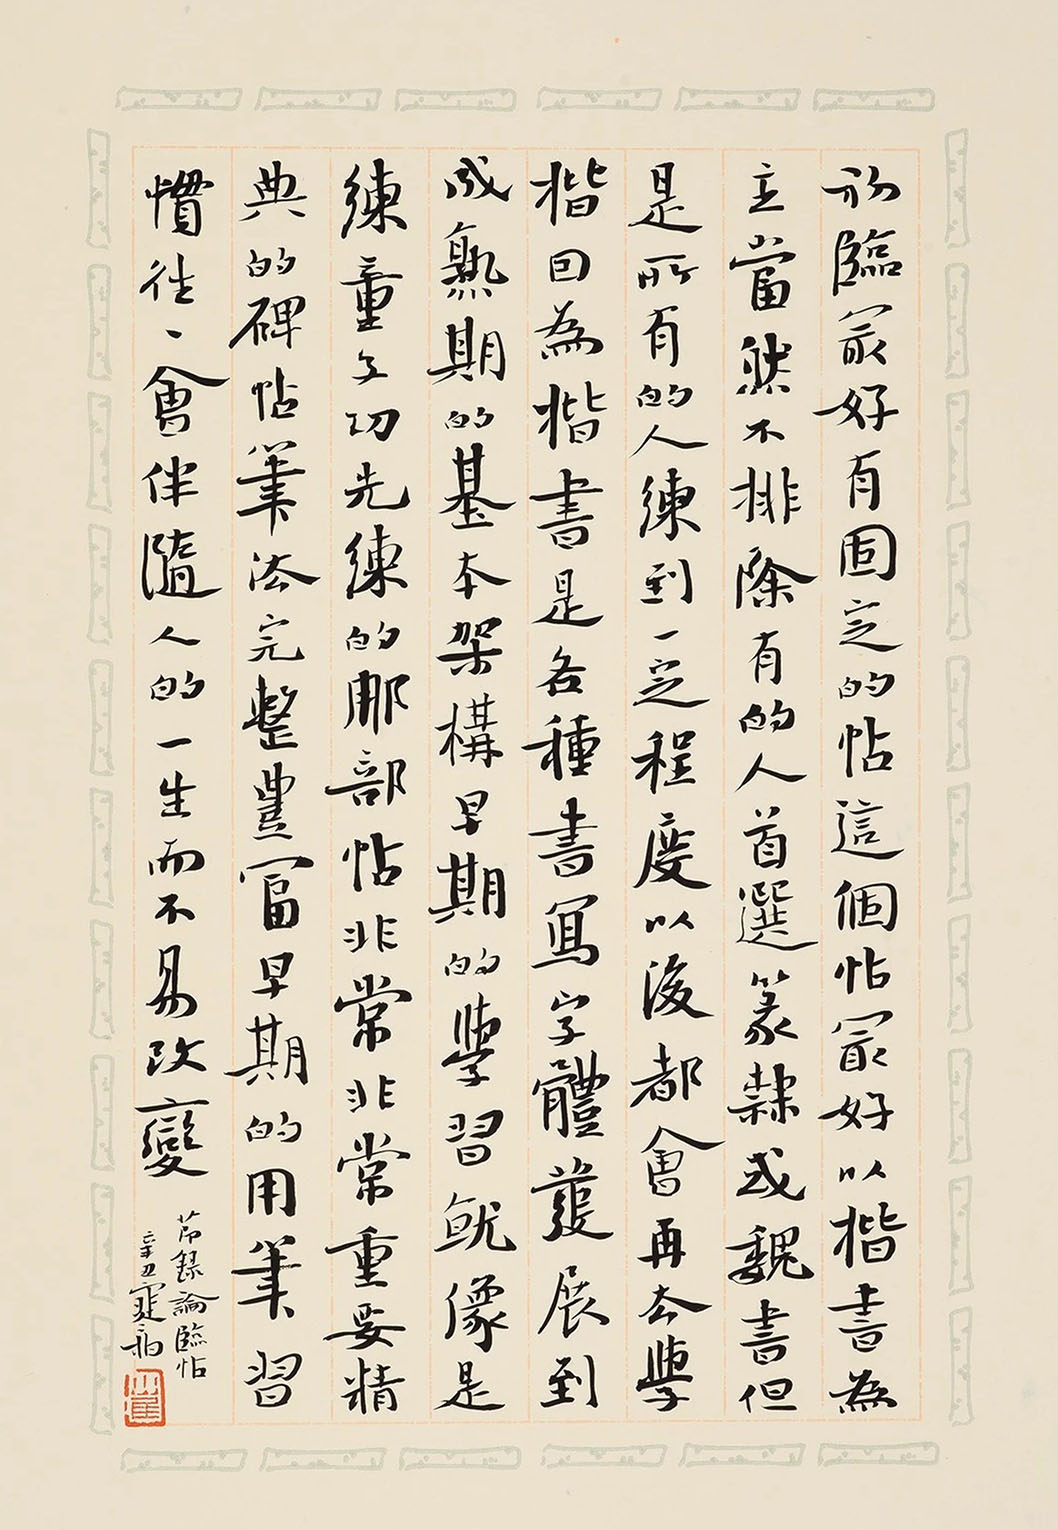 初臨冣好有固定的帖這個帖冣好以楷書為
主當然不排除有的人首選篆隸或魏書但
是所有的人練到一定程度以後都會再去學
楷因為楷書是各種書寫字體發展到
成熟期的基本架構早期的學習就像是
練童子功先練的那部帖非常非常重要精
典的碑帖筆法完整豐富早期的用筆習
慣往往會伴隨人的一生而不易改變
節錄論臨帖
辛丑